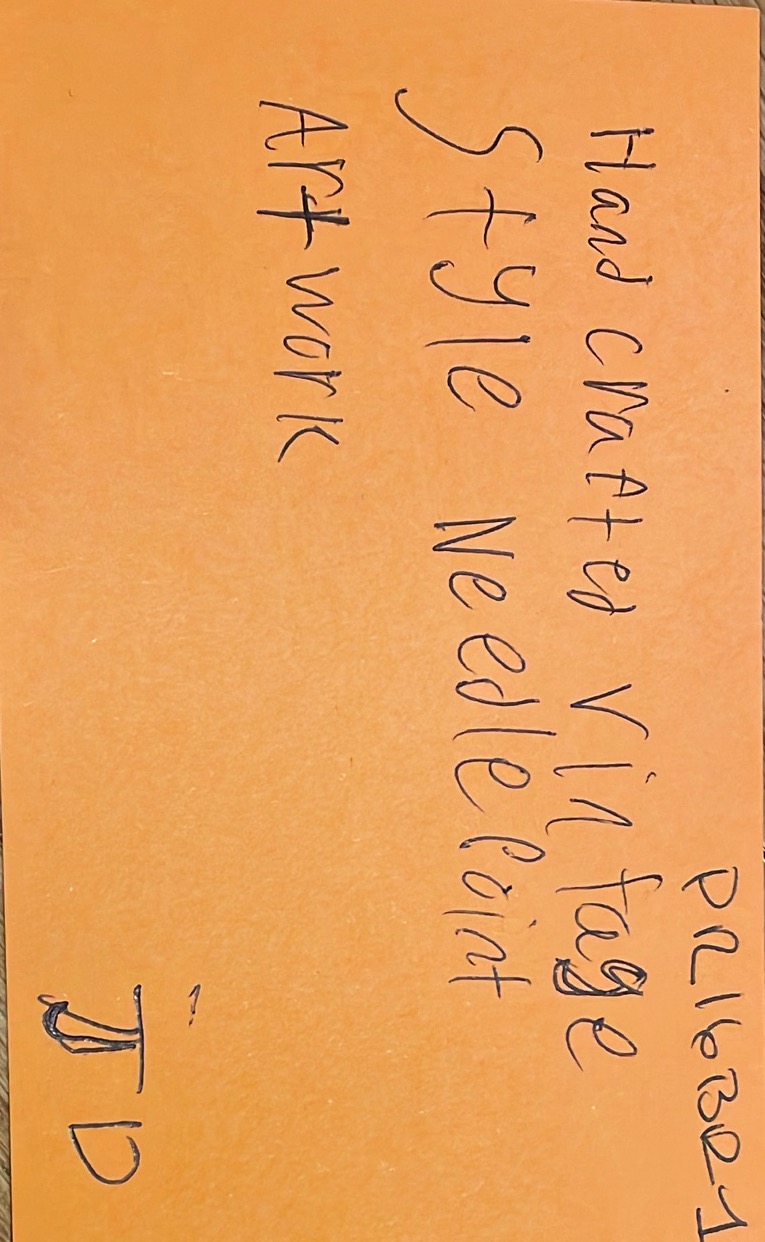 PR16BR1
Hand crafted Vintage
Style NeedlePoint
Art work
JD